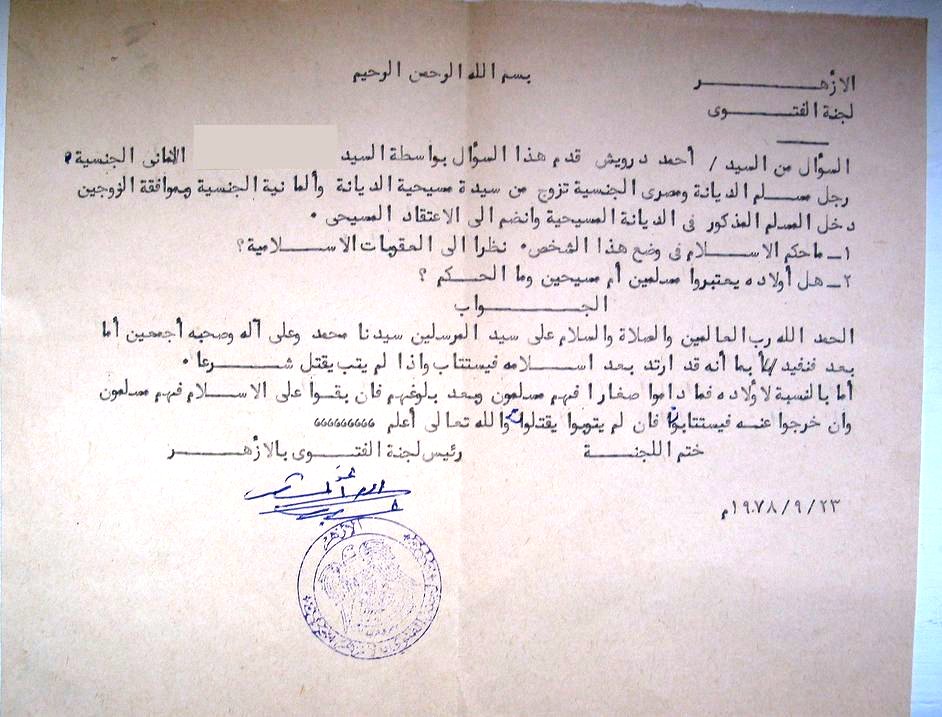 بسم الله الرحمن الرحيم
الأزهـــــــر
لجنة الفتـــوى
السؤال من السيد / أحمد درويش قدم هذا السؤال بواسطة السيد الألمانى الجنسية
رجل مسلم الديانة ومصرى الجنسية تزوج من سيدة مسيحية الديانة وألمانية الجنسية وبموافقة الزوجين
دخل المسلم المذكور فى الديانة المسيحية وانضم الى الاعتقاد المسيحى .
١ـ ماحكم الاســلام فى وضع هذا الشخص . نظرا الى العقوبات الاســلامية ؟
٢ـ هل أولاده يعتبروا مسلمين أم مسيحين وما الحــكم ؟
الجـــــواب
الحمد الله رب العالمين والصلاة والسلام على سيد المرسلين سيدنا محمد وعلى آله وصحبه أجمعين أما
بعد فنفيد بأنه قد ارتد بعد اســلامه فيستتاب واذا لم يتب يقتل شــرعا .
أما بالنسبة لأولاده فما داموا صغارا فهم مسلمون وبعد بلوغهم فان بقوا على الاســلام فهم مسلمون
وان خرجوا عنــه فيستتابوا فان لم يتوبوا يقتلوا والله تعالى أعلم
ختم اللجنــــة
رئيس لجنة الفتــوى بالأزهــــر
٢٣ / ٩ / ١٩٧٨م
الأزهر